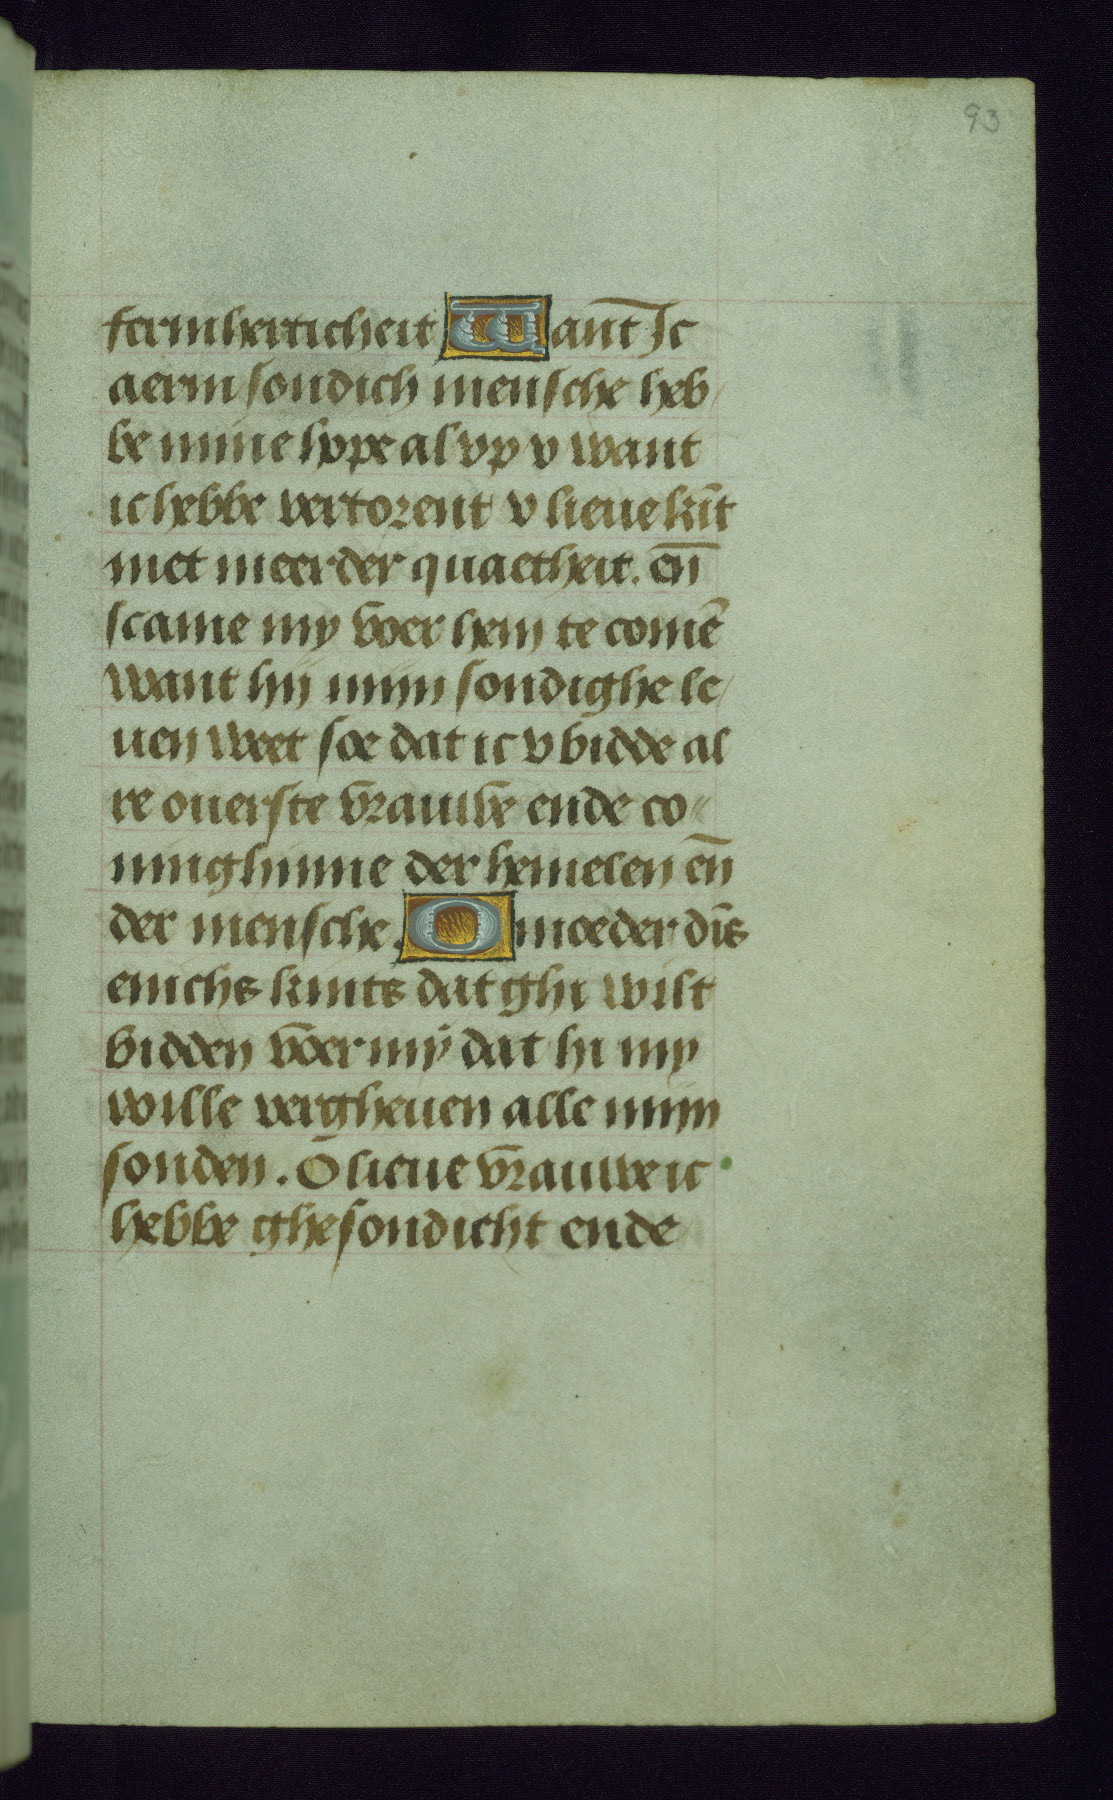 93
fermherticheit Want Ic
aerm sondich mensche heb
be mine hope al vp v want
ic hebbe vertorent v lieue kīt
met meerder quaetheit. en̄
scame my voer hem te comē
want hij mijn sondighe le
uen weet soe dat ic v bidde al
re ouerste vrauwe ende co
ninghinne der hemelen en̄
der mensche. O moeder dīs
enichs kints dat ghi wilt
bidden voer mÿ dat hi my
wille vergheuen alle mijn
sonden. O lieue vrauwe ic
hebbe ghesondicht ende